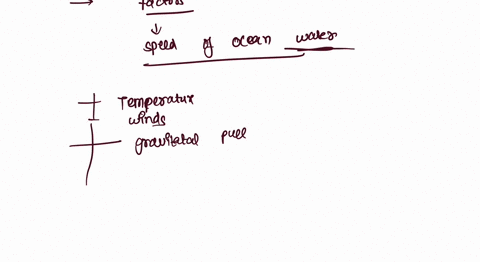 → factors
↓
speed of ocean water
Temperatur
winds
gravitatal pull